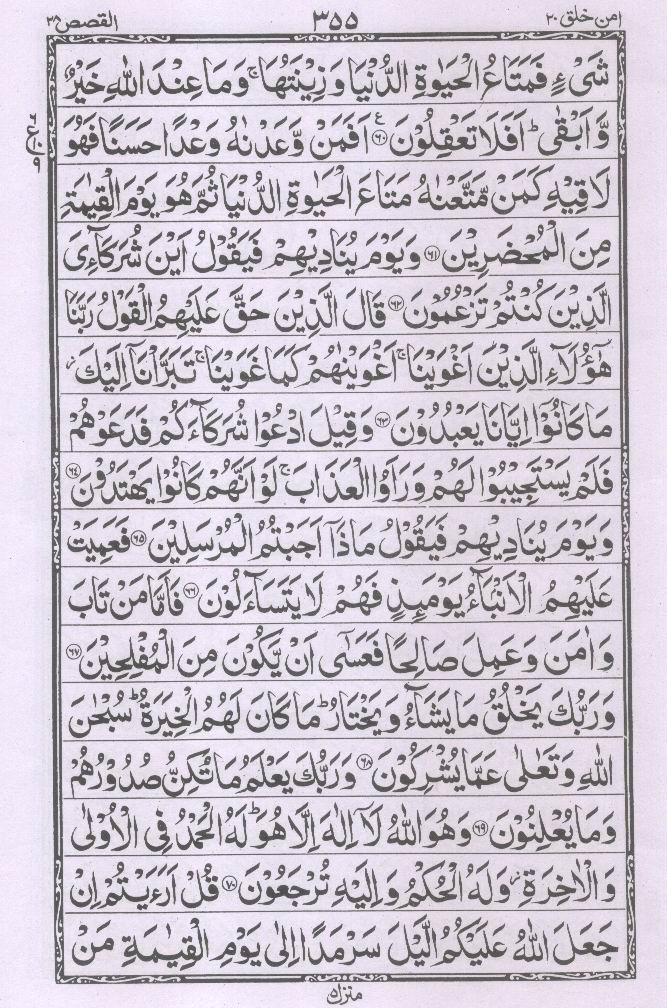 امن خلق ۲۰ ۳۵۵ القصص ۲۸
شَیۡءٍ فَمَتَاعُ الۡحَیٰوةِ الدُّنۡیَا وَ زِیۡنَتُهَا ۚ وَ مَا عِنۡدَ اللّٰهِ خَیۡرٌ
وَّ اَبۡقٰی ؕ اَفَلَا تَعۡقِلُوۡنَ ﴿۶۰﴾ ع اَفَمَنۡ وَّعَدۡنٰهُ وَعۡدًا حَسَنًا فَهُوَ
ع ۶ ۹
لَاقِیۡهِ کَمَنۡ مَّتَّعۡنٰهُ مَتَاعَ الۡحَیٰوةِ الدُّنۡیَا ثُمَّ هُوَ یَوۡمَ الۡقِیٰمَةِ
مِنَ الۡمُحۡضَرِیۡنَ ﴿۶۱﴾ وَ یَوۡمَ یُنَادِیۡهِمۡ فَیَقُوۡلُ اَیۡنَ شُرَکَآءِیَ
الَّذِیۡنَ کُنۡتُمۡ تَزۡعُمُوۡنَ ﴿۶۲﴾ قَالَ الَّذِیۡنَ حَقَّ عَلَیۡهِمُ الۡقَوۡلُ رَبَّنَا
هٰۤؤُلَآءِ الَّذِیۡنَ اَغۡوَیۡنَا ۚ اَغۡوَیۡنٰهُمۡ کَمَا غَوَیۡنَا ۚ تَبَرَّاۡنَاۤ اِلَیۡکَ ۫
مَا کَانُوۡۤا اِیَّانَا یَعۡبُدُوۡنَ ﴿۶۳﴾ وَ قِیۡلَ ادۡعُوۡا شُرَکَآءَکُمۡ فَدَعَوۡهُمۡ
فَلَمۡ یَسۡتَجِیۡبُوۡا لَهُمۡ وَ رَاَوُا الۡعَذَابَ ۚ لَوۡ اَنَّهُمۡ کَانُوۡا یَهۡتَدُوۡنَ ﴿۶۴﴾
وَ یَوۡمَ یُنَادِیۡهِمۡ فَیَقُوۡلُ مَاذَاۤ اَجَبۡتُمُ الۡمُرۡسَلِیۡنَ ﴿۶۵﴾ فَعَمِیَتۡ
عَلَیۡهِمُ الۡاَنۡۢبَآءُ یَوۡمَئِذٍ فَهُمۡ لَا یَتَسَآءَلُوۡنَ ﴿۶۶﴾ فَاَمَّا مَنۡ تَابَ
وَ اٰمَنَ وَ عَمِلَ صَالِحًا فَعَسٰۤی اَنۡ یَّکُوۡنَ مِنَ الۡمُفۡلِحِیۡنَ ﴿۶۷﴾
وَ رَبُّکَ یَخۡلُقُ مَا یَشَآءُ وَ یَخۡتَارُ ؕ مَا کَانَ لَهُمُ الۡخِیَرَةُ ؕ سُبۡحٰنَ
اللّٰهِ وَ تَعٰلٰی عَمَّا یُشۡرِکُوۡنَ ﴿۶۸﴾ وَ رَبُّکَ یَعۡلَمُ مَا تُکِنُّ صُدُوۡرُهُمۡ
وَ مَا یُعۡلِنُوۡنَ ﴿۶۹﴾ وَ هُوَ اللّٰهُ لَاۤ اِلٰهَ اِلَّا هُوَ ؕ لَهُ الۡحَمۡدُ فِی الۡاُوۡلٰی
وَ الۡاٰخِرَةِ ۫ وَ لَهُ الۡحُکۡمُ وَ اِلَیۡهِ تُرۡجَعُوۡنَ ﴿۷۰﴾ قُلۡ اَرَءَیۡتُمۡ اِنۡ
جَعَلَ اللّٰهُ عَلَیۡکُمُ الَّیۡلَ سَرۡمَدًا اِلٰی یَوۡمِ الۡقِیٰمَةِ مَنۡ
منزل ۵